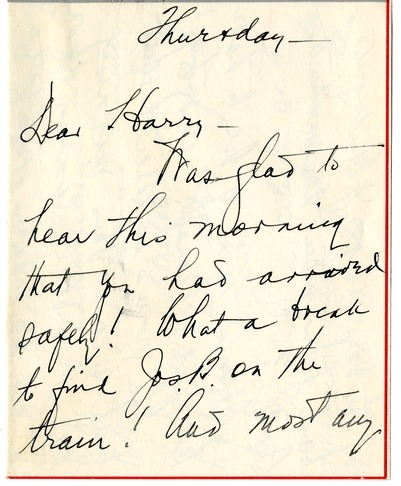 Thursday—
Dear Harry—
Was glad to
hear this morning
that you had arrived
safely! What a break
to find Jos. B. on the
train! And most any